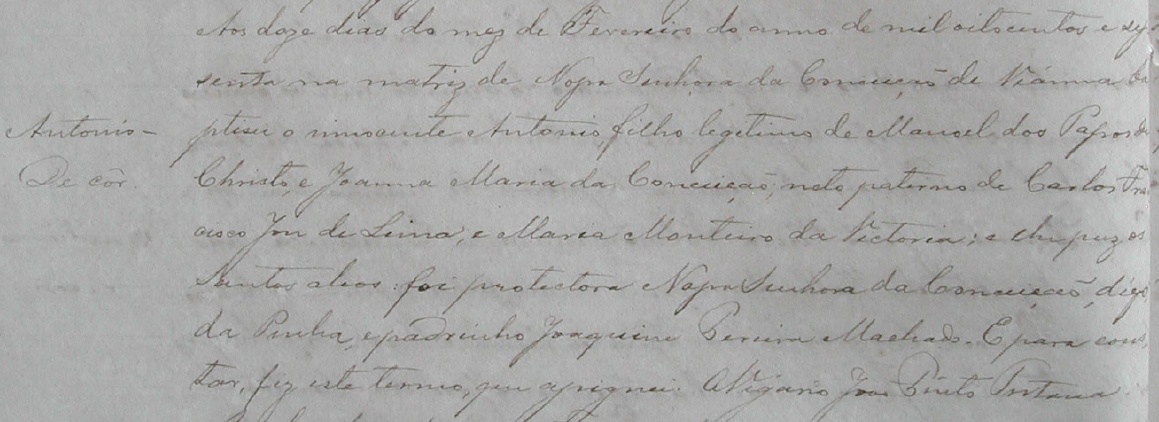 Aos doze dias do mez de Fevereiro do anno de mil oitocentos e ses
senta na matriz de Nossa Senhora da Conceição de Viánna ba
Antonio -
ptisei o innocente Antonio, filho legitimo de Manoel dos Passos de
De côr.
Christo, e Joanna Maria da Conceição, neto paterno de Carlos Fran
cisco José de Lima, e Maria Monteiro da Victoria; e lhe puz os
Santos oleos: foi protectora Nossa Senhora da Conceição, digo
da Penha, e padrinho Joaquim Pereira Machado. E para cons
tar, fiz este termo, que assignei. O Vigario João Pinto